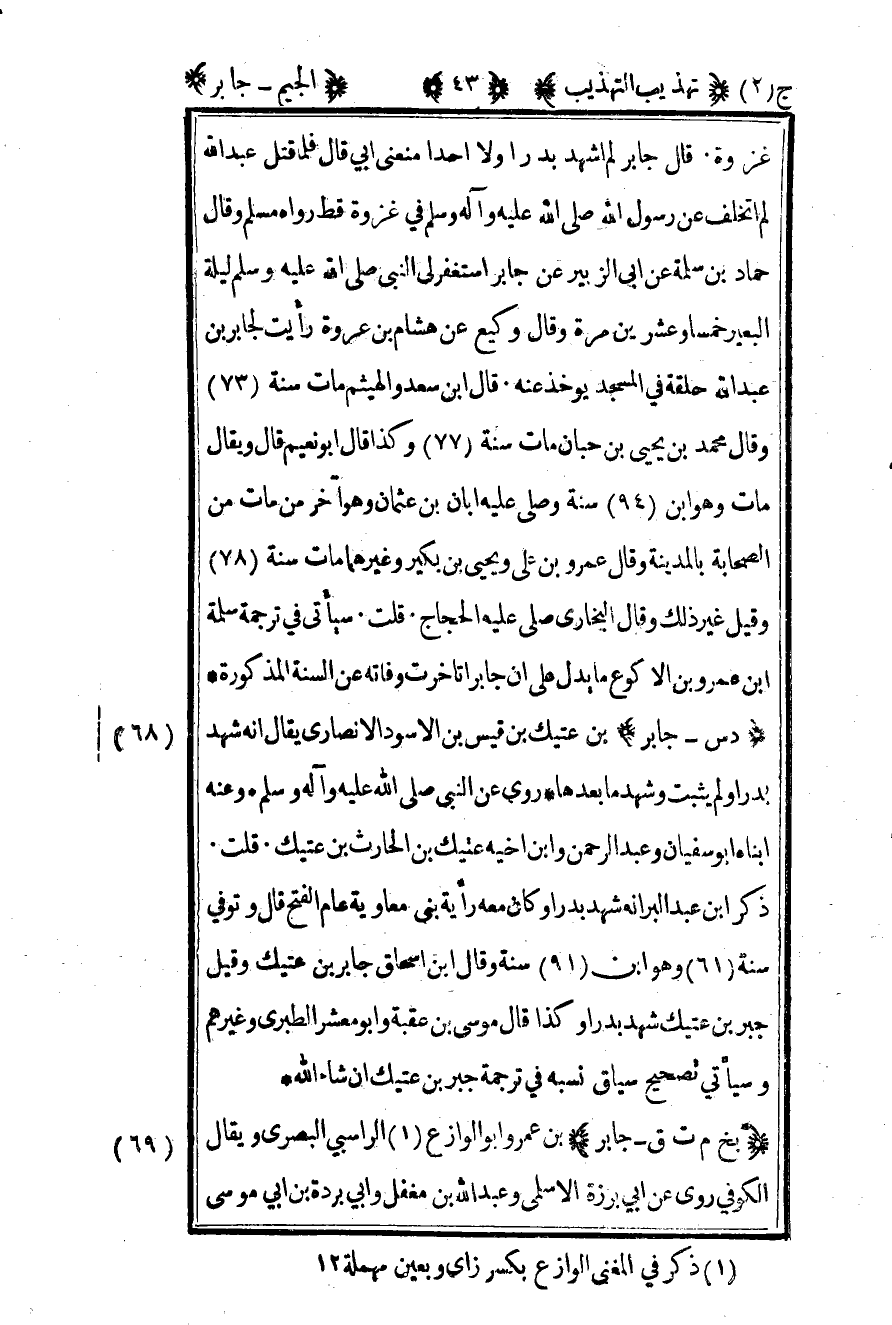 ج (٢) ﴿ تهذيب التهذيب ﴾ ﴿ ٤٣ ﴾ ﴿ الجيم ـ جابر ﴾
غزوة ٠ قال جابر لم اشهد بدرا ولا احدا منعنى ابي قال فلما قتل عبدالله
لم اتخلف عن رسول الله صلى الله عليه وآله وسلم في غزوة قط رواه مسلم وقال
حماد بن سلمة عن ابى الزبير عن جابر استغفر لى النبى صلى الله عليه وسلم ليلة
البعير خمسا وعشرين مرة وقال وكيع عن هشام بن عروة رأيت لجابر بن
عبدالله حلقة في المسجد يوخذ عنه ٠ قال ابن سعد والهيثم مات سنة (٧٣)
وقال محمد بن يحيى بن حبان مات سنة (٧٧) وكذا قال ابو نعيم قال ويقال
مات وهو ابن (٩٤) سنة وصلى عليه ابان بن عثمان وهو آخر من مات من
الصحابة بالمدينة وقال عمرو بن على ويحيى بن بكير وغيرهما مات سنة (٧٨)
وقيل غير ذلك وقال البخارى صلى عليه الحجاج ٠ قلت ٠ سيأتى في ترجمة سلمة
ابن عمرو بن الاكوع ما يدل على ان جابرا تاخرت وفاته عن السنة المذكورة*
﴿ دس ـ جابر ﴾ بن عتيك بن قيس بن الاسود الانصارى يقال انه شهد
(٦٨)
بدرا ولم يثبت وشهد ما بعدها* روى عن النبى صلى الله عليه وآله وسلم * وعنه
ابناه ابوسفيان وعبدالرحمن وابن اخيه عتيك بن الحارث بن عتيك ٠ قلت ٠
ذكر ابن عبد البر انه شهد بدرا وكان معه رأية بنى معاوية عام الفتح قال وتوفي
سنة (٦١) وهو ابن (٩١) سنة وقال ابن اسحاق جابر بن عتيك وقيل
جبر بن عتيك شهد بدرا وكذا قال موسى بن عقبة وابو معشر الطبرى وغيرهم
وسيأتي تصحيح سياق نسبه في ترجمة جبر بن عتيك ان شاء الله*
﴿ بخ م ت ق ـ جابر ﴾ بن عمرو ابو الوازع (١) الراسبي البصرى ويقال
(٦٩)
الكوفي روى عن ابي برزة الاسلمى وعبدالله بن مغفل وابي بردة بن ابي موسى
(١) ذكر في المغنى الوازع بكسر زاى وبعين مهملة ١٢